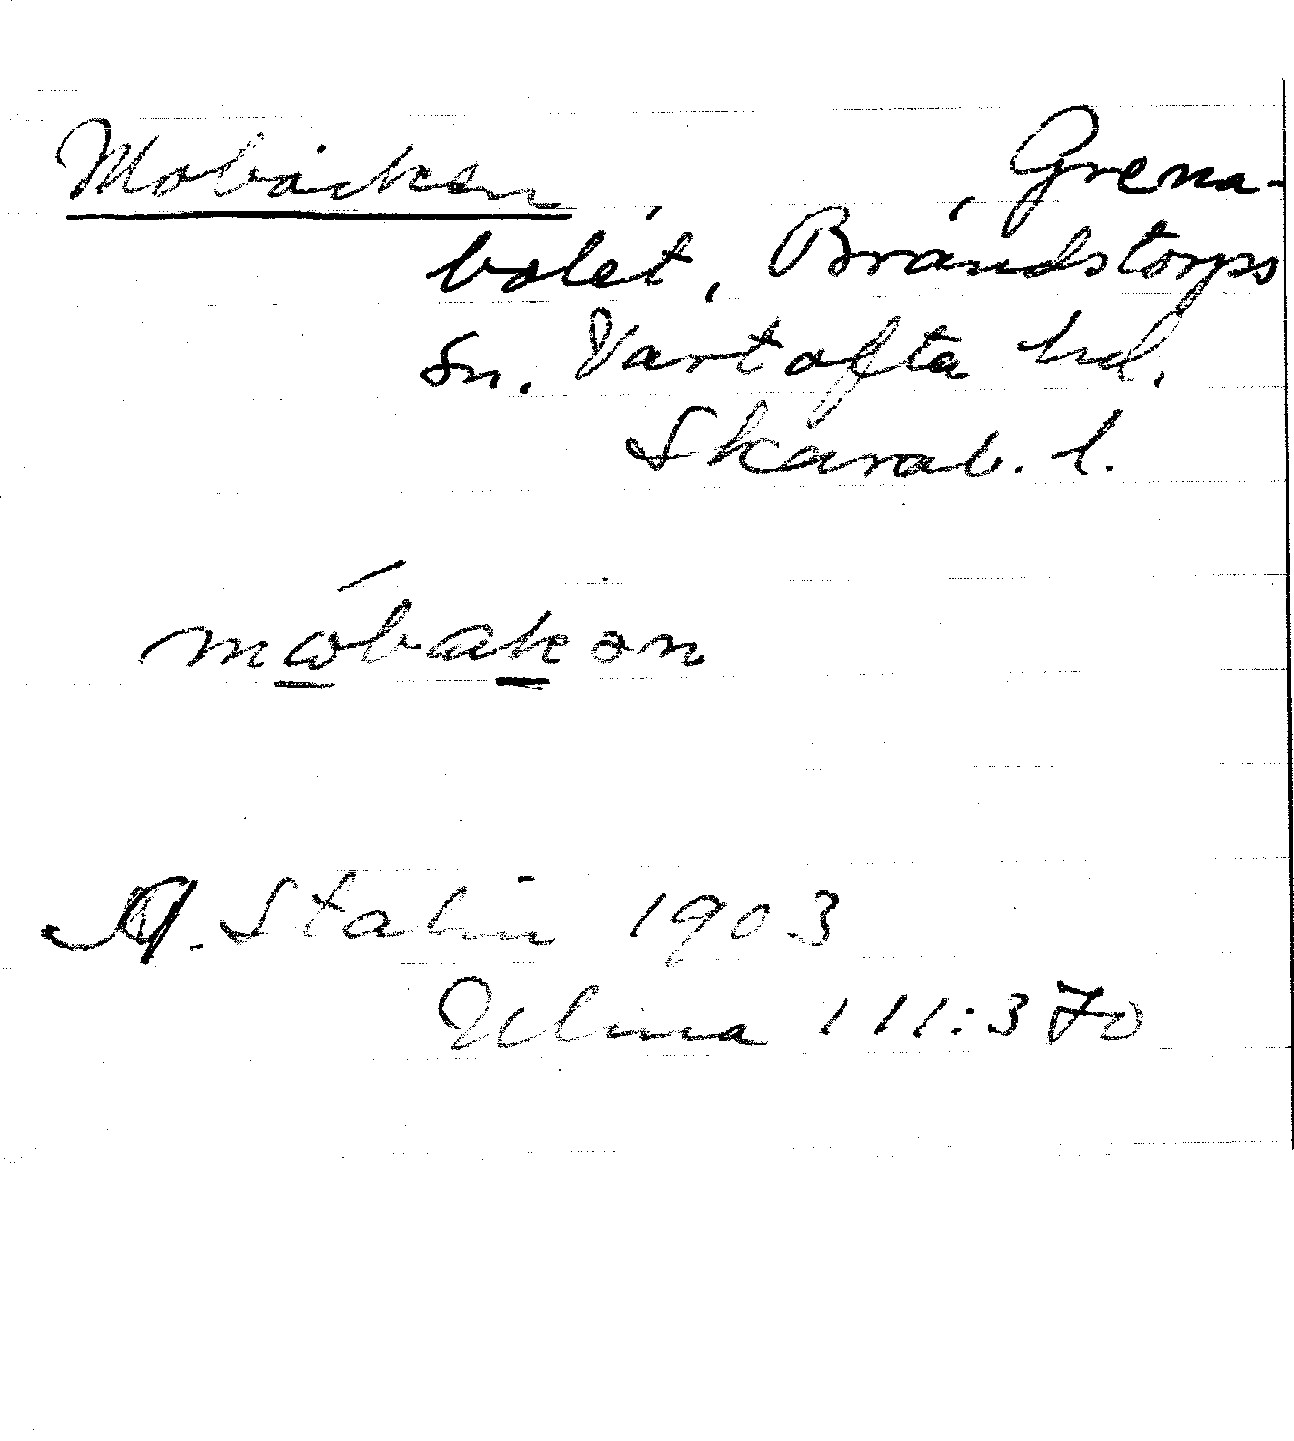 Mobäcken, , Grena-
bolet, Brandstorps
sn. Vartofta hd.
Skarab. l.
A. Stalin 1903
Ulma 111:370